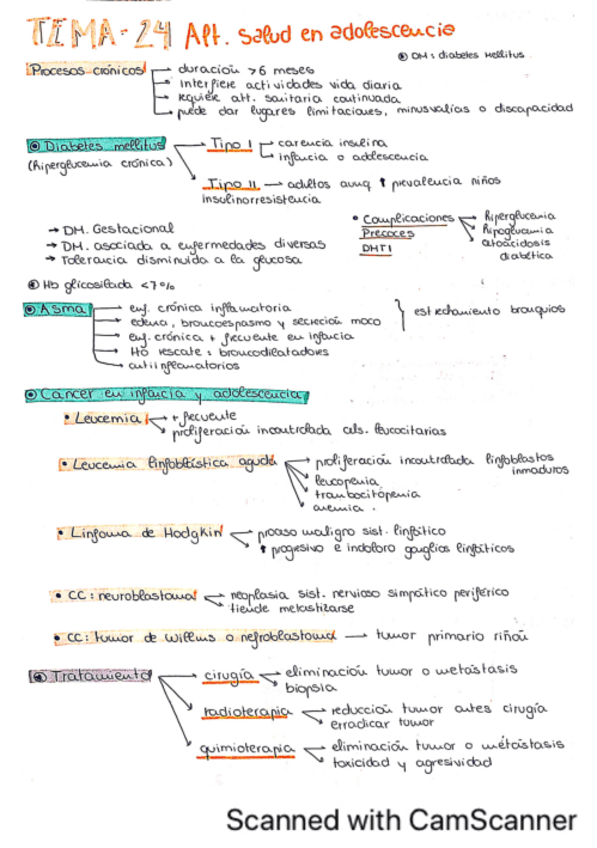 TEMA-24 Alt. salud en adolescencia
⊙ DM: diabetes mellitus.
Procesos crónicos
duración >6 meses
interfiere actividades vida diaria
requiere att. sanitaria continuada
puede dar lugares limitaciones, minusvalías o discapacidad
⊙ Diabetes mellitus
(hiperglucemia crónica)
Tipo I
carencia insulina
infancia o adolescencia
Tipo II → adultos aunq ↑ prevalencia niños
insulinorresistencia
→ DM. Gestacional
→ DM. asociada a enfermedades diversas
→ Tolerancia disminuida a la glucosa
• Complicaciones
Precoces
DMT1
Hiperglucemia
Hipoglucemia
cetoacidosis
diabética
⊙ Hb glicosilada <7%
⊙ Asma
enf. crónica inflamatoria
edema, broncoespasmo y secreción moco
} estrechamiento bronquios
enf. crónica + frecuente en infancia
Ho rescate: broncodilatadores
antiinflamatorios
⊙ Cancer en infancia y adolescencia
• Leucemia
+ frecuente
proliferación incontrolada cels. leucocitarias
• Leucemia linfoblástica aguda
proliferación incontrolada linfoblastos
inmaduros
leucopenia
trombocitopenia
anemia.
• Linfoma de Hodgkin
proceso maligno sist. linfático
↑ progresivo e indoloro ganglios linfáticos
• CC: neuroblastoma
neoplasia sist. nervioso simpático periférico
tiende metastizarse
• CC: tumor de Willms o nefroblastoma → tumor primario riñón
⊙ Tratamiento
cirugía
eliminación tumor o metástasis
biopsia
radioterapia
reducción tumor antes cirugía
erradicar tumor
quimioterapia
eliminación tumor o metástasis
toxicidad y agresividad
Scanned with CamScanner